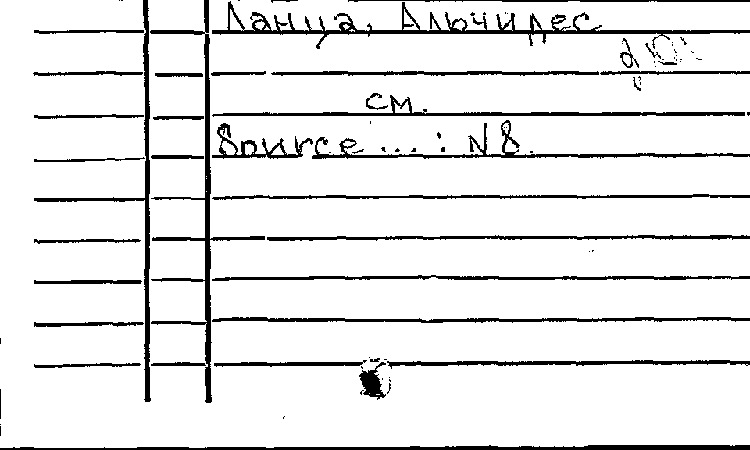 Ланца, Альчидес
см.
Source ... : N 8.